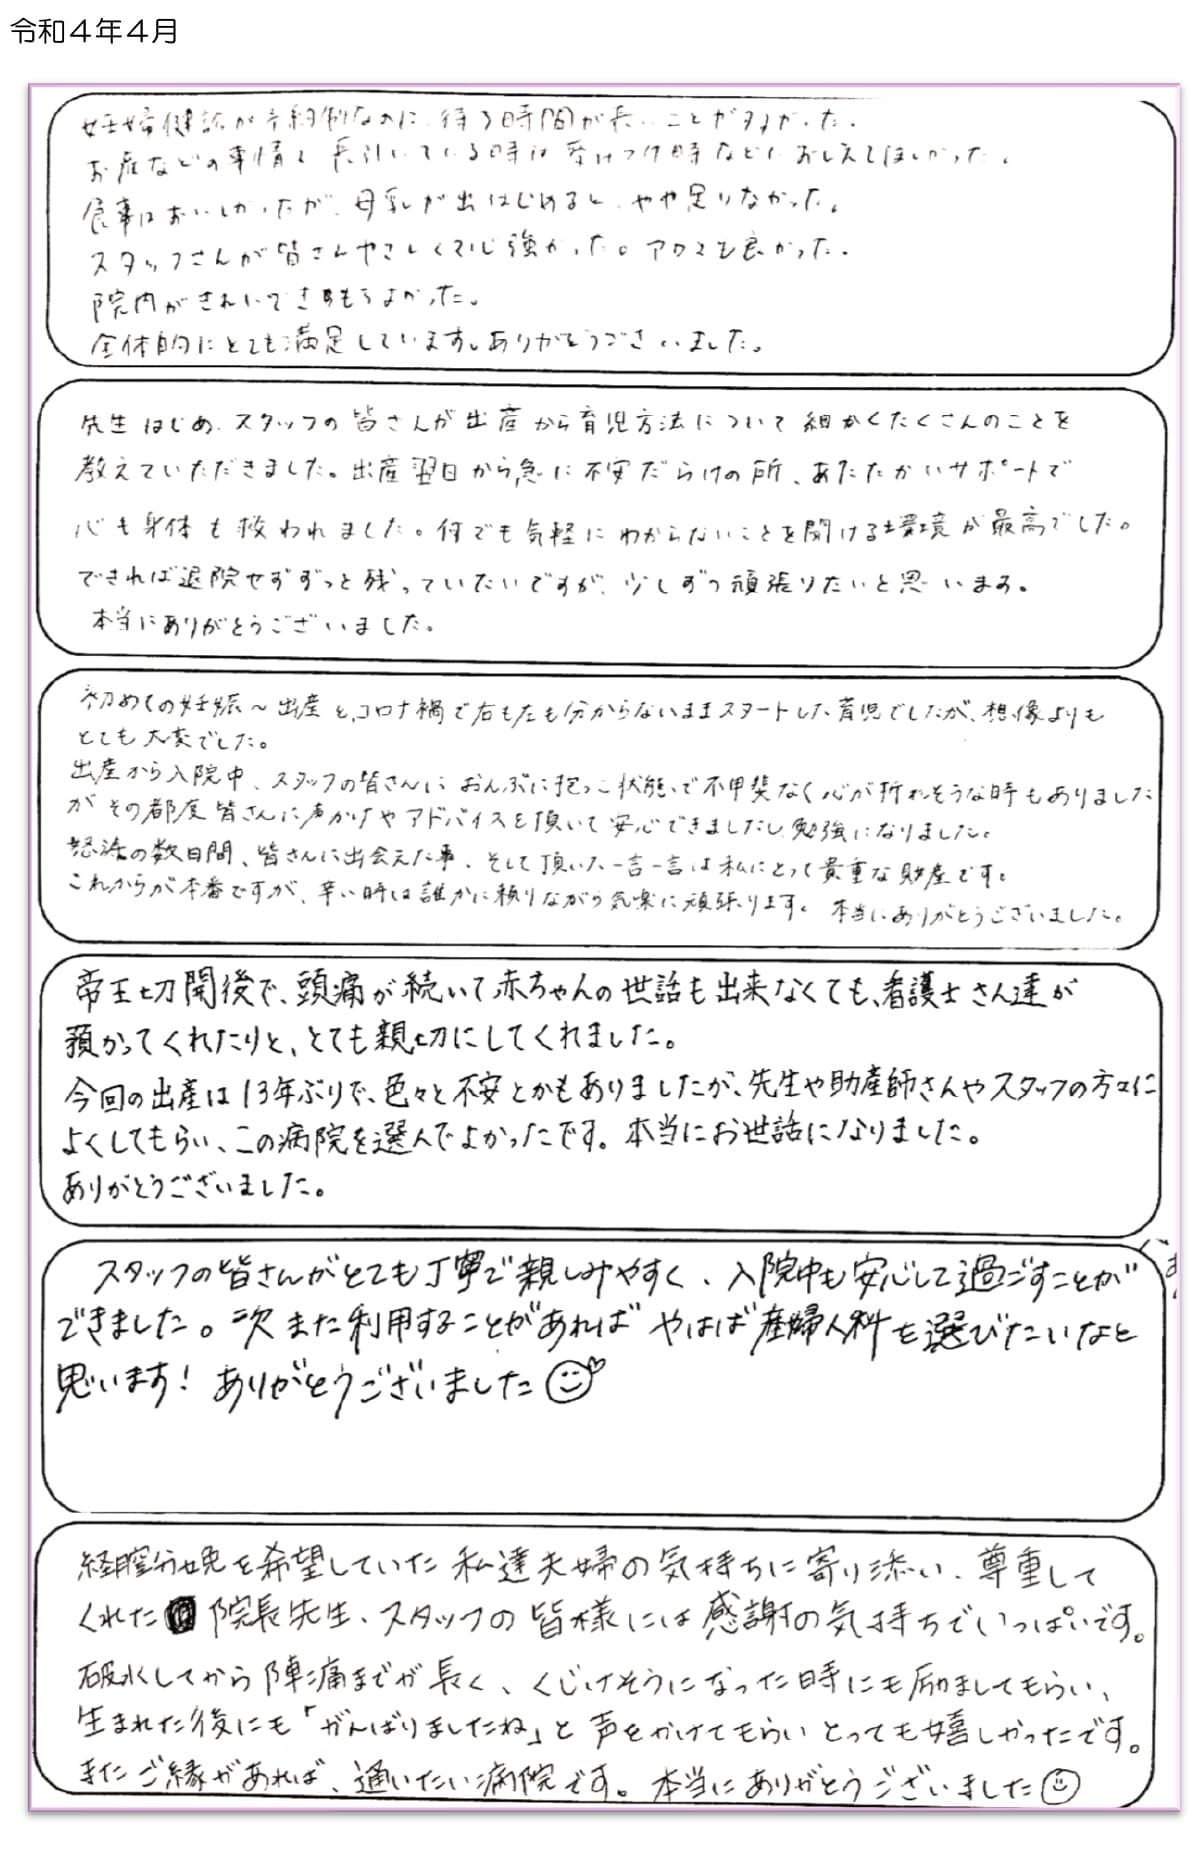 令和４年４月
妊婦健診が予約制なのに、待つ時間が長いことが多かった。
お産などの事情で長引いている時は受けつけ時などにおしえてほしかった。
食事はおいしかったが、母乳が出はじめると、やや足りなかった。
スタッフさんが皆さんやさしくて心強かった。アロマも良かった。
院内がきれいできもちよかった。
全体的にとても満足しています。ありがとうございました。
先生はじめ、スタッフの皆さんが出産から育児方法について細かくたくさんのことを
教えていただきました。出産翌日から急に不安だらけの所、あたたかいサポートで
心も身体も救われました。何でも気軽にわからないことを聞ける環境が最高でした。
できれば退院せずずっと残っていたいですが、少しずつ頑張りたいと思います。
本当にありがとうございました。
初めての妊娠～出産と、コロナ禍で右も左も分からないままスタートした育児でしたが、想像よりも
とても大変でした。
出産から入院中、スタッフの皆さんにおんぶに抱っこ状態で不甲斐なく心が折れそうな時もありました
がその都度皆さんに声かけやアドバイスを頂いて安心できましたし、勉強になりました。
怒涛の数日間、皆さんに出会えた事、そして頂いた一言一言は私にとって貴重な財産です。
これからが本番ですが、辛い時は誰かに頼りながら気楽に頑張ります。本当にありがとうございました。
帝王切開後で、頭痛が続いて赤ちゃんの世話も出来なくても、看護士さん達が
預かってくれたりと、とても親切にしてくれました。
今回の出産は13年ぶりで、色々と不安とかもありましたが、先生や助産師さんやスタッフの方々に
よくしてもらい、この病院を選んでよかったです。本当にお世話になりました。
ありがとうございました。
スタッフの皆さんがとても丁寧で親しみやすく、入院中も安心して過ごすことが
できました。次また利用することがあればやはば産婦人科を選びたいなと
思います！ありがとうございました
経膣分娩を希望していた私達夫婦の気持ちに寄り添い、尊重して
くれた院長先生、スタッフの皆様には感謝の気持ちでいっぱいです。
破水してから陣痛までが長く、くじけそうになった時にも励ましてもらい、
生まれた後にも「がんばりましたね」と声をかけてもらいとっても嬉しかったです。
またご縁があれば、通いたい病院です。本当にありがとうございました